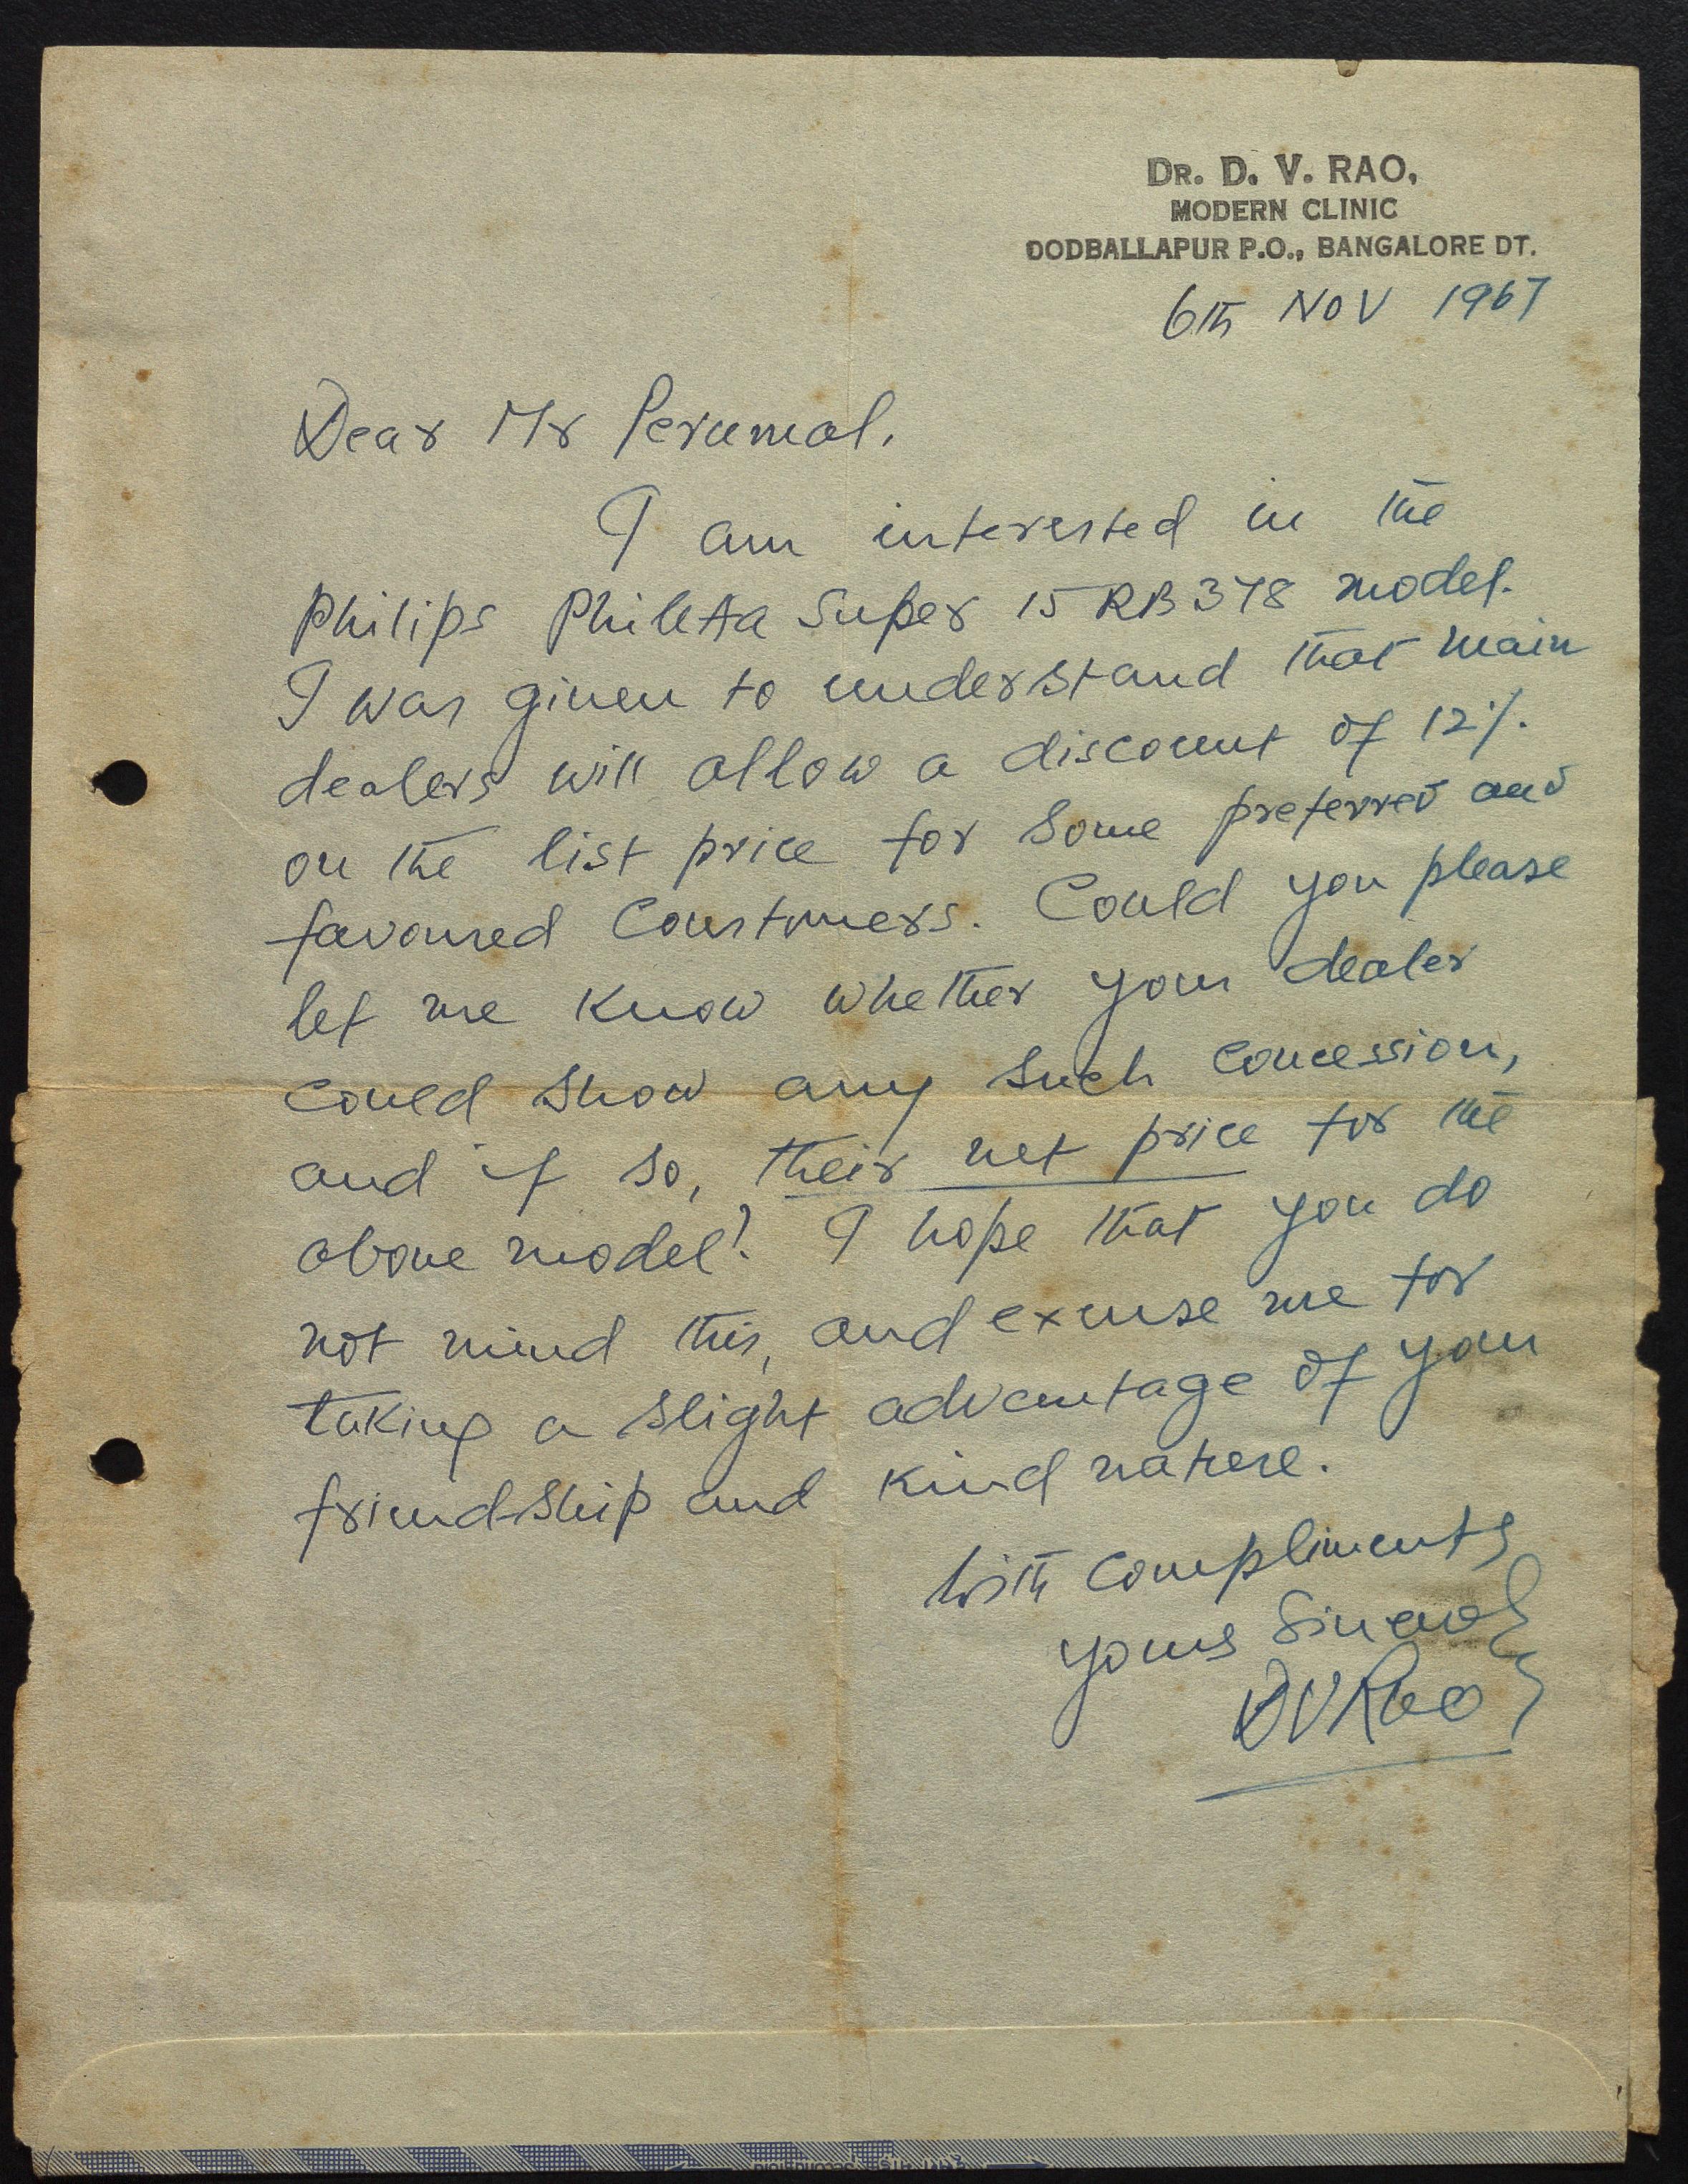 DR. D. V. RAO,
MODERN CLINIC
DODBALLAPUR P.O., BANGALORE DT.
6th NOV 1967
Dear Mr Perumal,
I am interested in the
Philips Philetta Super 15 RB 378 model.
I was given to understand that main
dealers will allow a discount of 12%
on the list price for some preferred and
favoured Coustomers. Could you please
let me know whether your dealer
could show any such concession,
and if so, their net price for the
above model? I hope that you do
not mind this, and excuse me for
taking a slight advantage of your
friendship and kind nature.
With compliments
yours Sincerely
DVRao